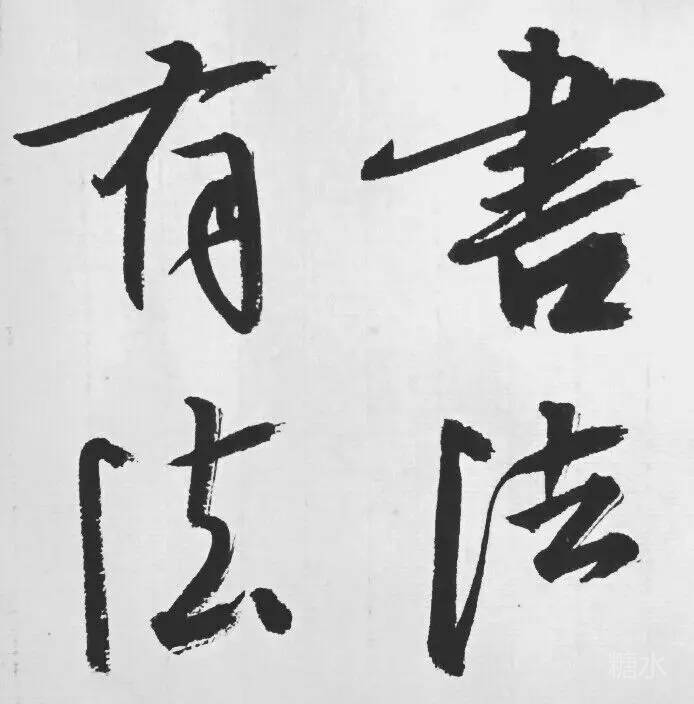 書法
有法
糖水